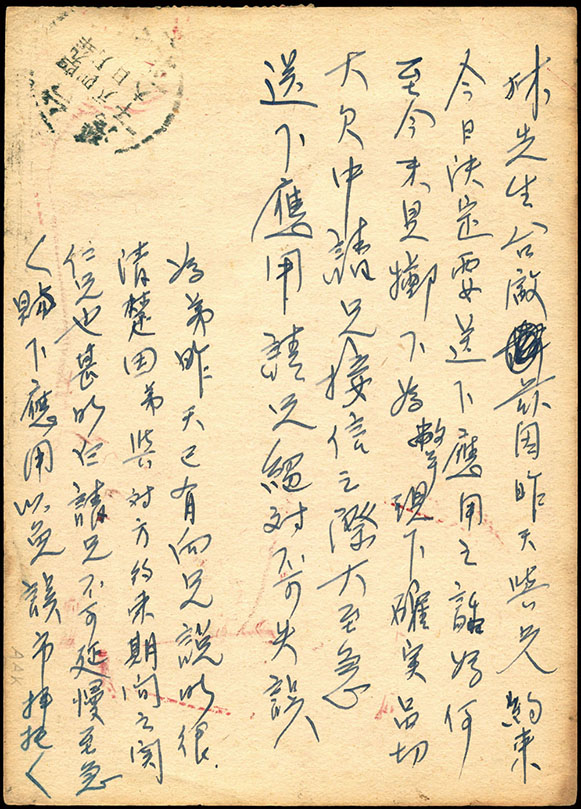 先生台啟 茲因昨天與兄約束
今日決定要送下應用之話為何
至今未見擲下為弊現下確实品切
大欠中請兄接信之際大至急
送下應用請兄絕对不可失誤
為弟昨天已有向兄說明很
清楚因弟與对方約束期间之関
係兄也甚明 請兄不可延慢至急
賜下應用以免誤市拜托
AAK